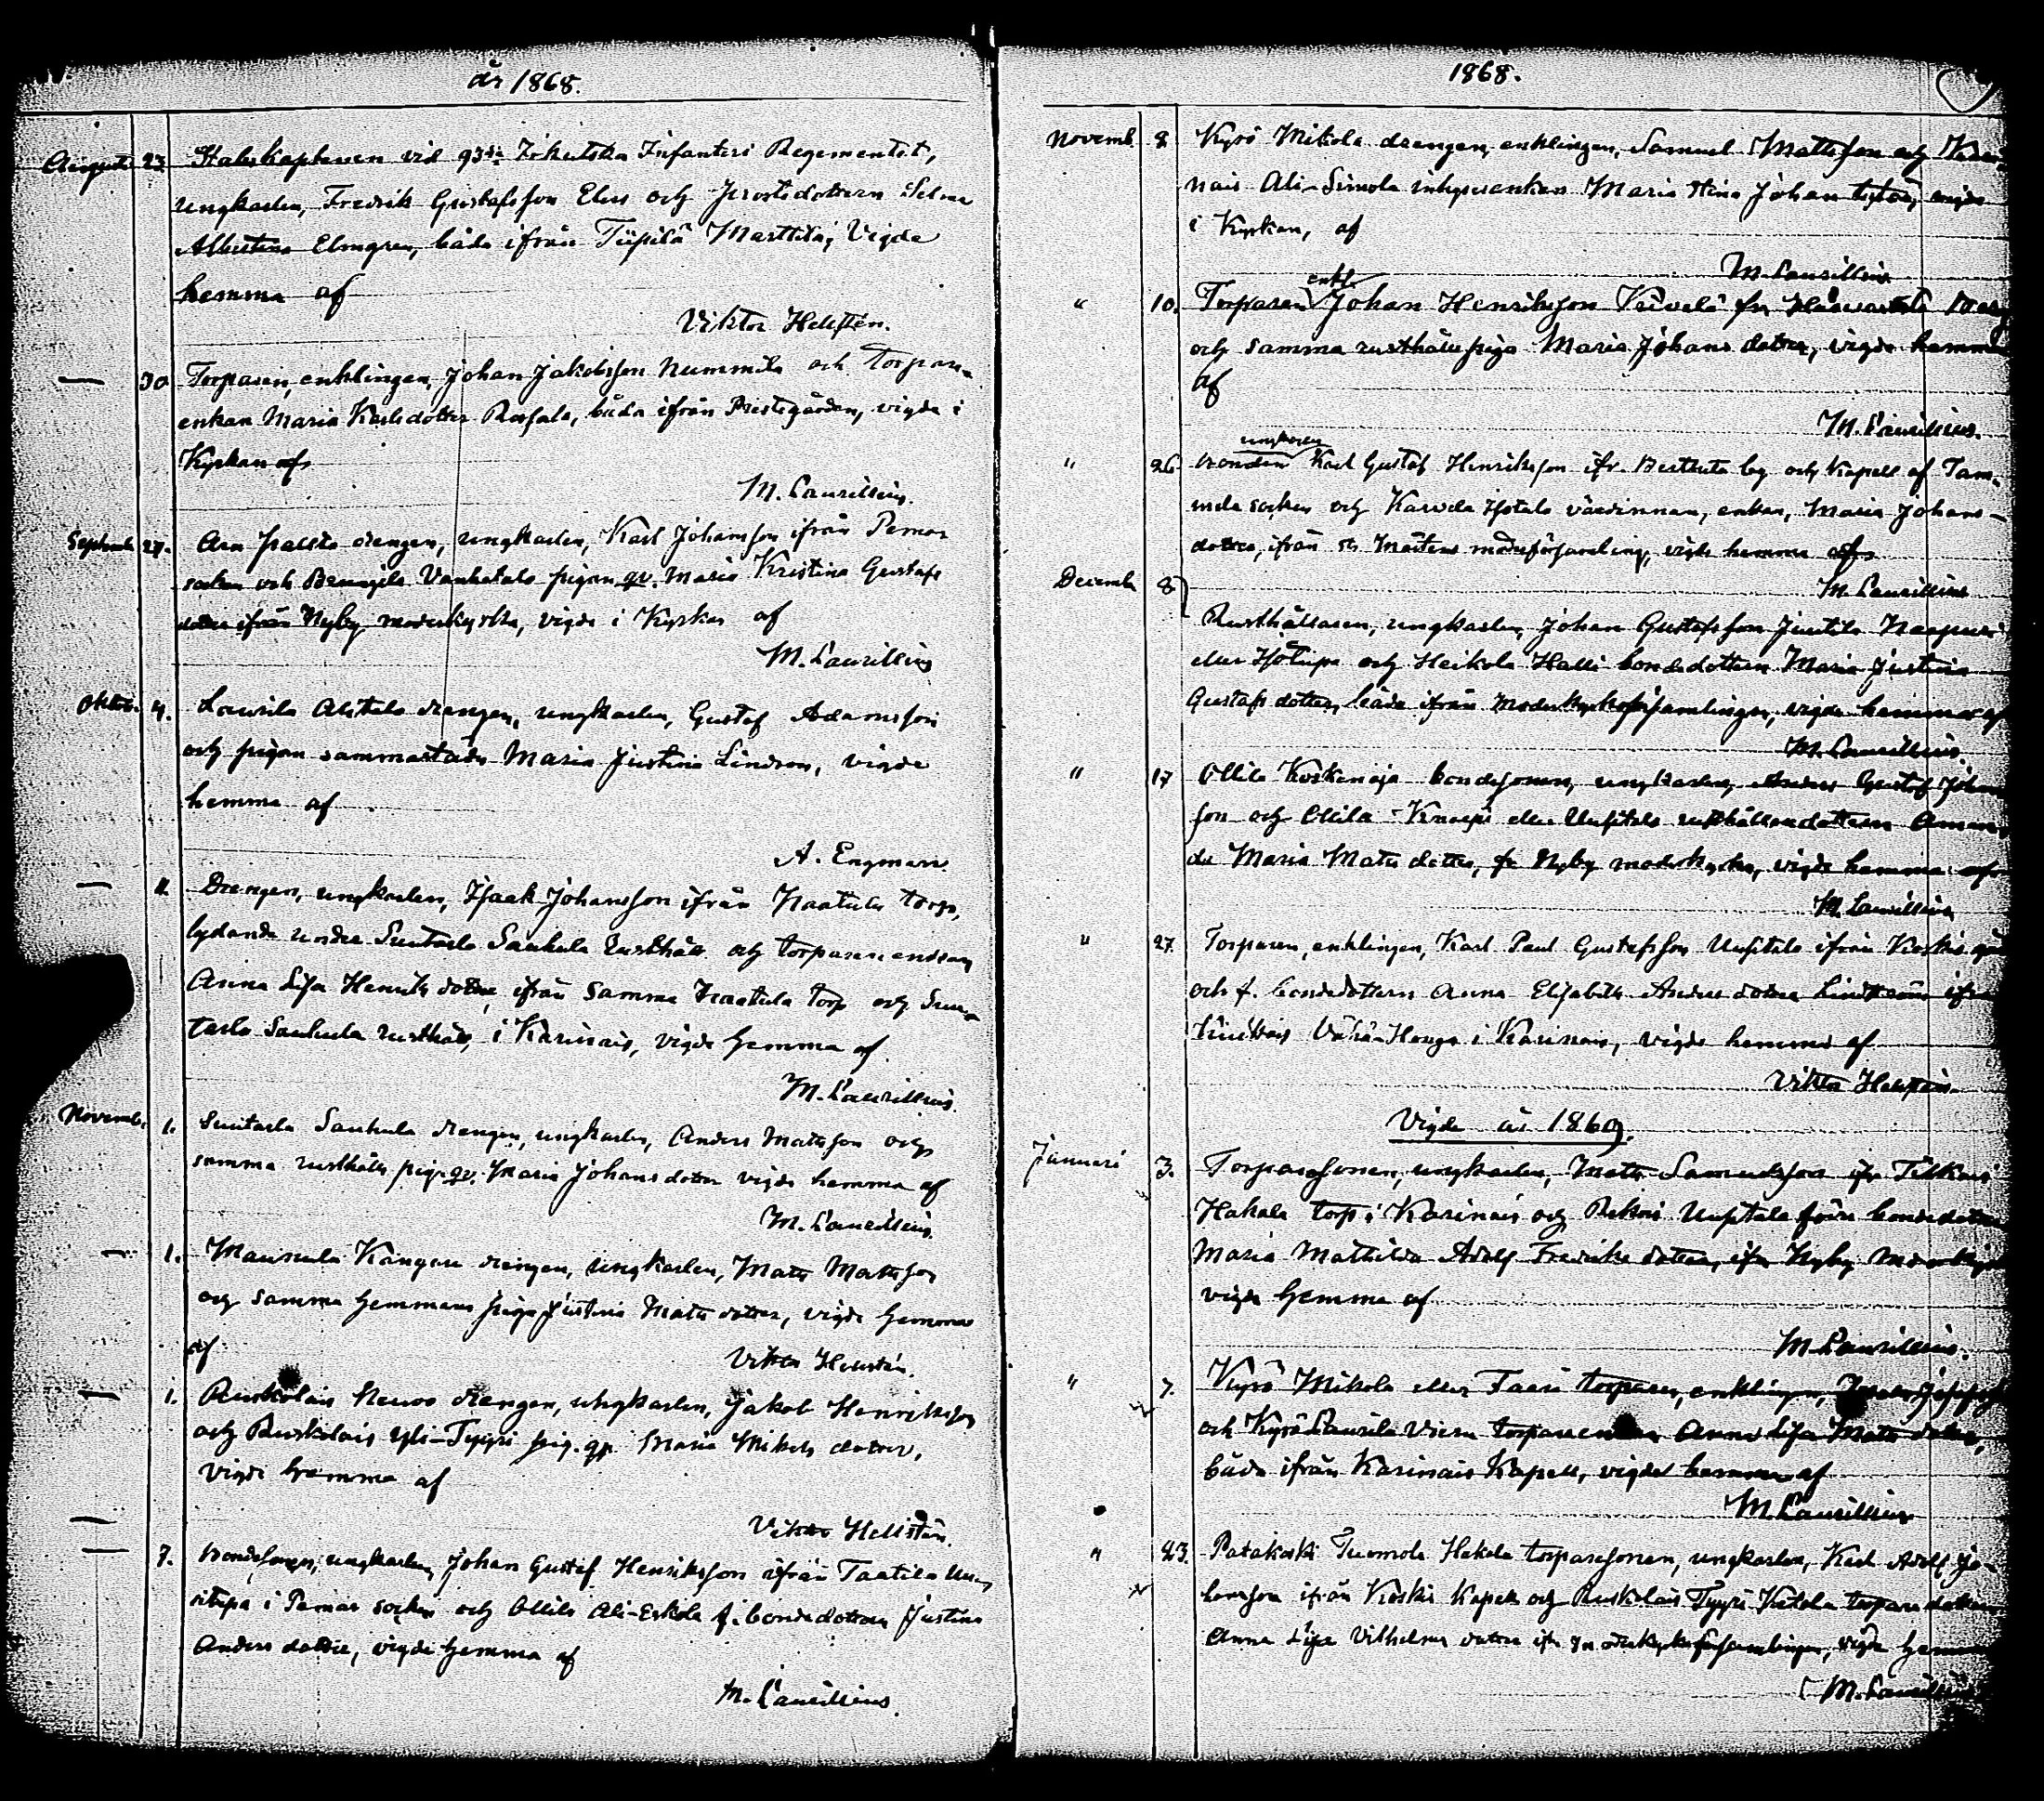 år 1868.
Augusti 23. Stabskaptenen vid 93die Irkutska Infanteri Regementet,
ungkarlen, Fredrik Gustafsson Elus och Prostdottern Selma
Albertina Elmgren, båda ifrån Tiipilä Marttila, Vigda
hemma af
Viktor Hellstén.
— 30 Torparen, enklingen, Johan Jakobsson Nummila och Torpare-
enkan Maria Karlsdotter Rosfala, båda ifrån Prestegården, vigda i
Kyrkan af
M. Laurillius.
Septemb. 27. drengen, ungkarlen, Karl Johansson ifrån Pemar
socken och Vanhatalo pigan qv. Maria Kristina Gustafs
dotter ifrån Nyby moderkyrka, vigde i Kyrkan af
M. Laurillius
Oktob. 4. Laurila Alitalo drengen, ungkarlen, Gustaf Adamsson
och pigan sammastädes Maria Justina Lindroos, vigde
hemma af
A. Engman.
— 11. Drengen, ungkarlen, Isaak Johansson ifrån Haatula torp,
lydande under Suutarla Sauhula Rusthåll och torpareenkan
Anna Lisa Henriksdotter ifrån samma Haatula torp och Suu-
tarla Sauhula rusthåll, i Karinais, vigde hemma af
M. Laurillius.
Novemb. 1. Suutarla Sauhula drengen, ungkarlen, Anders Matsson och
samma rusthålls pig. qv. Maria Johansdotter vigde hemma af
M. Laurillius
— 1. Maunula Kangare drengen, ungkarlen, Mats Matsson
och samma hemmans piga Justina Matsdotter, vigde hemma
af
Viktor Hellstén.
— 1. Ruskolais Neuvo drengen, ungkarlen, Jakob Henriksson
och Ruskolais Yli-Tyyri pig. qv. Maria Mikelsdotter,
vigde hemma af
—
Viktor Hellstén.
— 7. Bondesonen, ungkarlen, Johan Gustaf Henriksson ifrån Taatila Uu-
situpa i Pemar socken och Ollila Ali-Eskola f. bondedottren Justina
Andersdotter, vigde hemma af
M. Laurillius
1868.
Novemb. 8 Kyrö Mikola drengen, enklingen, Samuel Mattsson och Kari-
nais Ali-Simola inhyseenkan Maria Stina Johans dotter, vigde
i Kyrkan, af
M. Laurillius
enkl.
" 10. Torparen Johan Henriksson
och samma rusthålls piga Maria Johans dotter, vigde hemma
af
M. Laurillius.
ungkarlen
" 26 bonden Karl Gustaf Henriksson ifr. by och Kapell af Tam-
mela socken och Karvela Isotalo värdinnan, enkan, Maria Johans-
dotter, ifrån St. Mårtens moderförsamling, vigde hemma af
M. Laurillius
Decemb. 8 Rusthållaren, ungkarlen, Johan Gustafsson Juutila
eller Isotupa och Heikola Halli bondedottern Maria Justina
Gustafsdotter, båda ifrån Moderkyrkoförsamlingen, vigde hemma af
M. Laurillius.
" 17 Ollila Koskenoja bondesonen, ungkarlen, Anders Gustaf Johans
son och Ollila Knaapi eller Uusitalo rusthållaredottern Aman-
da Maria Matsdotter, fr. Nyby moderkyrka, vigde hemma af
M. Laurillius
" 27. Torparen, enklingen, Karl Paul Gustafsson Uusitalo ifrån Koskis
och f. bondedottern Anna Elisabeth Andersdotter ifrån
Vähä-Heuga i Karinais, vigde hemma af
Viktor Hellstén
Vigde år 1869.
Januari 3. Torparesonen, ungkarlen, Mats Samuelsson ifr.
Hakala torp i Karinais och Uusitalo förre bondedotter
Maria Mathilda Adolf Fredriksdotter, ifr. Nyby Moderkyrka
vigde hemma af
M. Laurillius.
" 7. Kyrö Mikola eller torparen, enklingen,
och Kyrö Laurila torpareenkan Anna Lisa Matsdotter,
båda ifrån Karinais Kapell, vigde hemma af
M. Laurillius
" 23. Patakoski Tuomola Hakala torparesonen, ungkarlen, Karl Adolf Jo-
hansson ifrån Koskis Kapell och Ruskolais Tyyri Ketola torparedotter
Anna Lisa Vilhelmsdotter ifr. moderkyrkoförsamlingen, vigde hemma
M. Laurillius